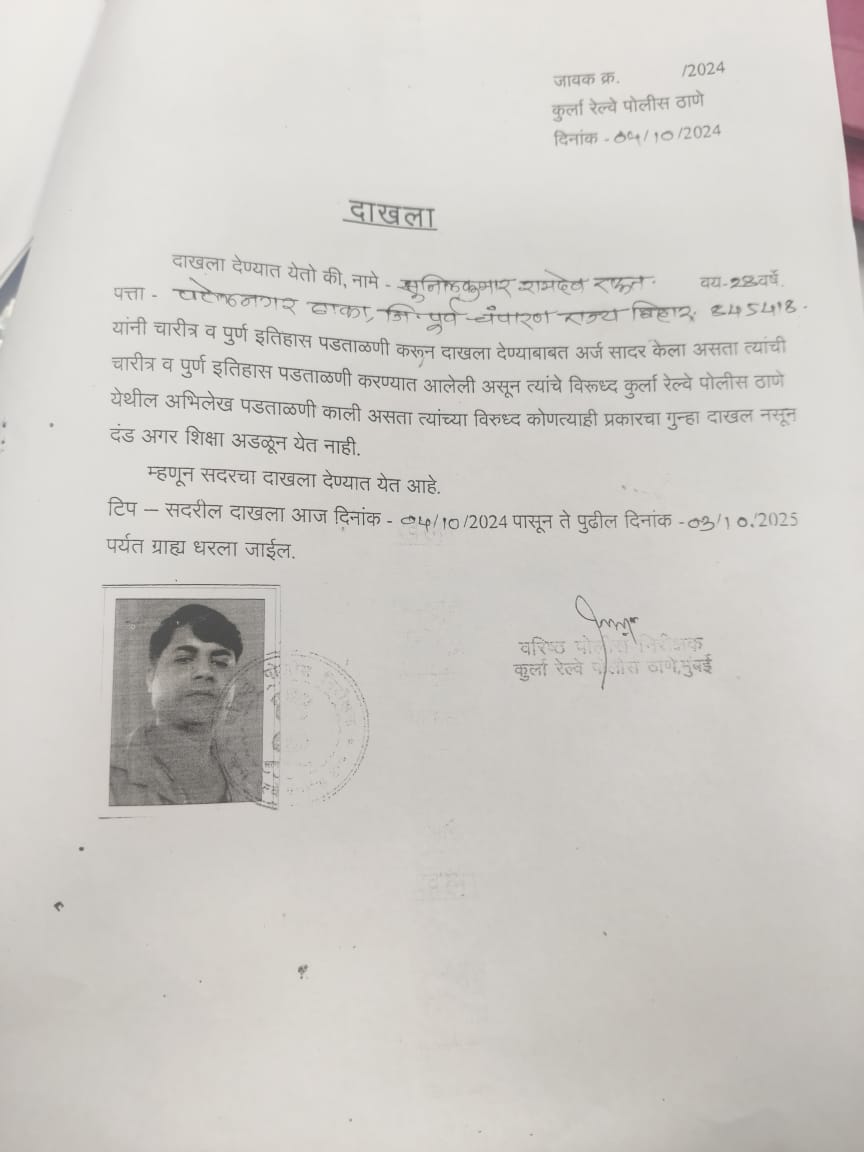 जावक क्र. /2024
कुर्ला रेल्वे पोलीस ठाणे
दिनांक - 04/10/2024
दाखला
दाखला देण्यात येतो की, नामे - सुनिलकुमार रामदेव राऊत. वय-28वर्षे.
पत्ता - पटेलनगर ढाका, जि. पुर्व चंपारण राज्य बिहार. 845418.
यांनी चारीत्र व पुर्ण इतिहास पडताळणी करून दाखला देण्याबाबत अर्ज सादर केला असता त्यांची
चारीत्र व पुर्ण इतिहास पडताळणी करण्यात आलेली असून त्यांचे विरूध्द कुर्ला रेल्वे पोलीस ठाणे
येथील अभिलेख पडताळणी काली असता त्यांच्या विरुध्द कोणत्याही प्रकारचा गुन्हा दाखल नसून
दंड अगर शिक्षा अडळून येत नाही.
म्हणून सदरचा दाखला देण्यात येत आहे.
टिप – सदरील दाखला आज दिनांक - 04/10/2024 पासून ते पुढील दिनांक -03/10/2025
पर्यत ग्राह्य धरला जाईल.
वरिष्ठ पोलीस निरीक्षक
कुर्ला रेल्वे पोलीस ठाणे,मुंबई